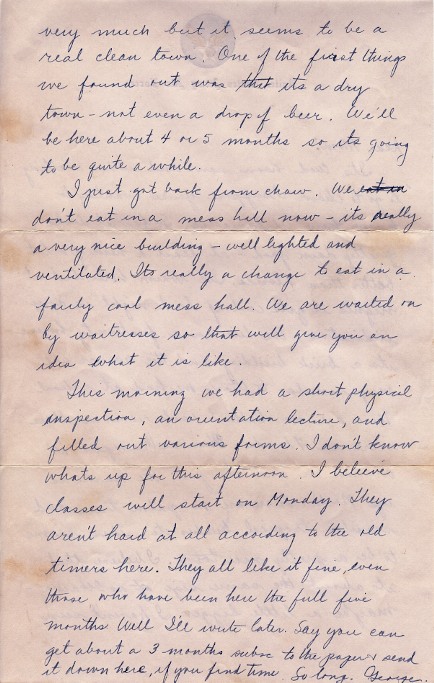 very much but it seems to be a
real clean town. One of the first things
we found out was that its a dry
town - not even a drop of beer. We'll
be here about 4 or 5 months so its going
to be quite a while.
I just got back from chow. We eat in
don't eat in a mess hall now - its really
a very nice building - well lighted and
ventilated. Its really a change to eat in a
fairly cool mess hall. We are waited on
by waitresses so that will give you an
idea what it is like.
This morning we had a short physical
inspection, an orientation lecture, and
filled out various forms. I don't know
whats up for this afternoon. I believe
classes will start on Monday. They
aren't hard at all according to the old
timers here. They all like it fine, even
those who have been here the full five
months Well I'll write later. Say you can
get about a 3 months subsc to the paper & send
it down here, if you find time. So long. George.